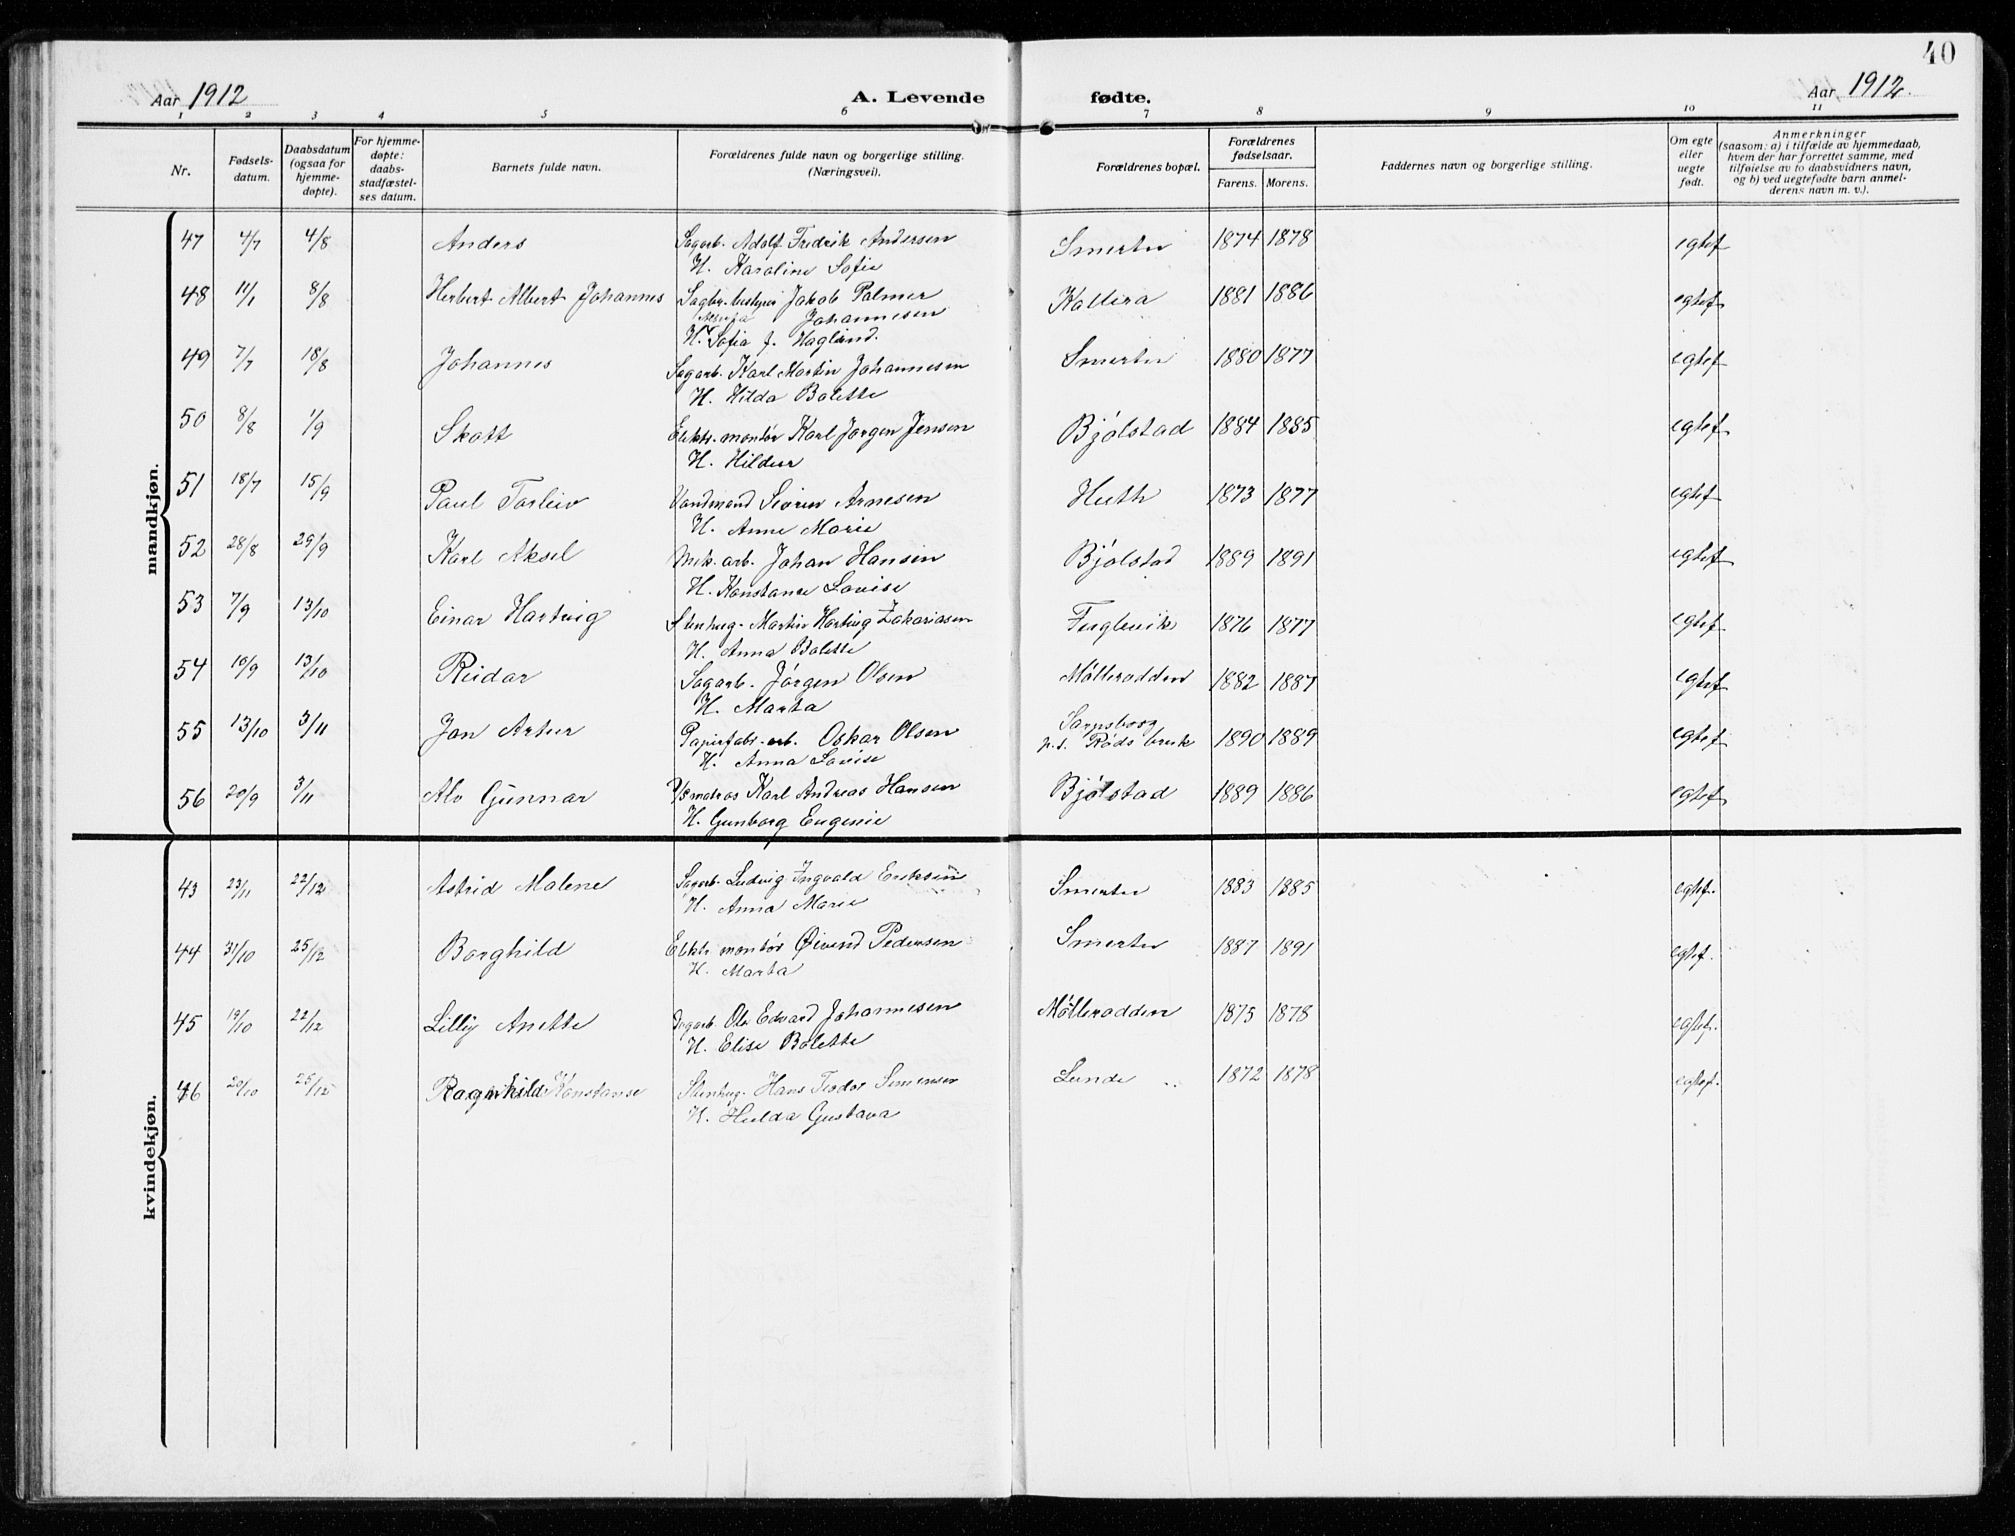 40
Aar 1912 A. Levende fødte. Aar 1912.
1 2 3 4 5 6 7 8 9 10 11
Nr. Fødsels-datum. Daabsdatum (ogsaa for hjemme-døpte). For hjemme-døpte: daabs-stadfæstel-ses datum. Barnets fulde navn. Forældrenes fulde navn og borgerlige stilling. (Næringsvei). Forældrenes bopæl. Forældrenes fødselsaar. Farens. Morens. Faddernes navn og borgerlige stilling. Om egte eller uegte født. Anmerkninger (saasom: a) i tilfælde av hjemmedaab, hvem der har forrettet samme, med tilføielse av to daabsvidners navn, og b) ved uegtefødte barn anmel-derens navn m. v.).
mandkjøn.
47 4/7 4/8 Anders Sagarb. Adolf Fredrik Andersen Smertu 1874 1878 egtef
H. Karoline Sofie
48 11/1 8/8 Herbert Albert Johannes Sagbr. bestyrer Jakob Palmer Kallera 1881 1886 egtef
Johannesen
H. Sofia f. Hagland.
49 7/7 18/8 Johannes Sagarb. Karl Martin Johannesen Smertu 1880 1877 egtef
H. Hilda Bolette
50 8/8 1/9 Skott Elektr. montør Karl Jørgen Jensen Bjølstad 1884 1885 egtef
H. Hildur
51 18/7 15/9 Paul Torleiv Vandmand Sevrin Arnesen Huth 1873 1877 egtef
H. Anne Marie
52 28/8 29/9 Karl Aksel Mek. arb. Johan Hansen Bjølstad 1889 1891 egtef
H. Konstance Lovise
53 7/9 13/10 Einar Hartvig Stenhug. Martin Hartvig Zakariasen Fuglevik 1876 1877 egtef
H. Anna Bolette
54 10/9 13/10 Reidar Sagarb. Jørgen Olsen Mølleradden 1882 1887 egtef
H. Marta
55 13/10 3/11 Jon Artur Papirfabr. arb. Oskar Olsen Sarpsborg 1890 1889 egtef
H. Anna Lovise p. t. Røds bruk
56 20/9 3/11 Alv Gunnar matros Karl Andreas Hansen Bjølstad 1889 1886 egtef
H. Gunborg Eugenie
kvindekjøn.
43 23/11 22/12 Astrid Malene Sagarb. Ludvig Ingvald Eriksen Smertu 1883 1885 egtef.
H. Anna Marie
44 31/10 25/12 Borghild Elektr. montør Øivind Pedersen Smertu 1887 1891 egtef.
H. Marta
45 19/10 22/12 Lilly Anette Sagarb. Ole Edvard Johannesen Mølleradden 1875 1878 egtef.
H. Elise Bolette
46 20/10 25/12 Ragnhild Konstanse Stenhug. Hans Teodor Simensen Lunde 1872 1878 egtef.
H. Hulda Gustava